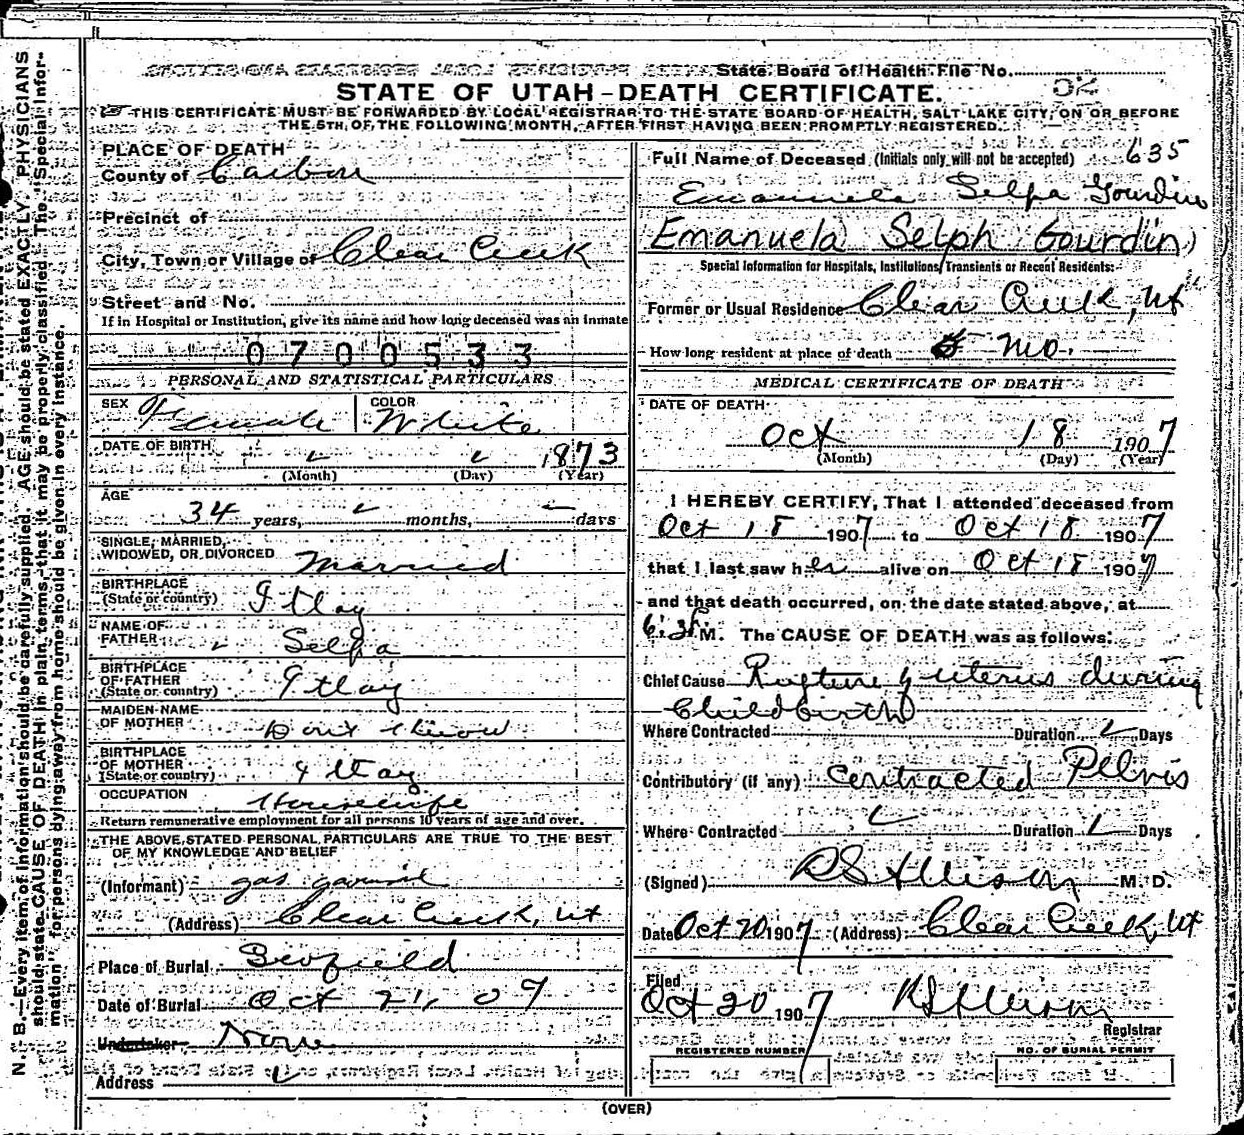 State Board of Health File No.
52
STATE OF UTAH-DEATH CERTIFICATE.
THIS CERTIFICATE MUST BE FORWARDED BY LOCAL REGISTRAR TO THE STATE BOARD OF HEALTH, SALT LAKE CITY, ON OR BEFORE
THE 5TH, OF, THE FOLLOWING MONTH, AFTER FIRST HAVING BEEN PROMPTLY REGISTERED.
N. B.—Every item of information should be carefully supplied. AGE should be stated EXACTLY. PHYSICIANS
should state CAUSE OF DEATH in plain terms, that it may be properly classified. The "Special Infor-
mation" for persons dying away from home should be given in every instance.
PLACE OF DEATH
County of Carbon
Precinct of
City, Town or Village of Clear Creek
Street and No.
If in Hospital or Institution, give its name and how long deceased was an inmate
0700533
PERSONAL AND STATISTICAL PARTICULARS
SEX Female COLOR White
DATE OF BIRTH 1873
(Month) (Day) (Year)
AGE
34 years, months, days
SINGLE, MARRIED,
WIDOWED, OR DIVORCED Married
BIRTHPLACE
(State or country) Itlay
NAME OF
FATHER Selpa
BIRTHPLACE
OF FATHER
(State or country) Itlay
MAIDEN NAME
OF MOTHER Dont Know
BIRTHPLACE
OF MOTHER
(State or country) Itlay
OCCUPATION Housewife
Return remunerative employment for all persons 10 years of age and over.
THE ABOVE STATED PERSONAL PARTICULARS ARE TRUE TO THE BEST
OF MY KNOWLEDGE AND BELIEF
(Informant)
(Address) Clear Creek, Ut
Place of Burial Scofield
Date of Burial Oct 21, 07
Undertaker None
Address
Full Name of Deceased (Initials only will not be accepted) 635
Emanuela Selpa Gourdin
Emanuela Selph Gourdin
Special Information for Hospitals, Institutions, Transients or Recent Residents:
Former or Usual Residence Clear Creek, Ut
How long resident at place of death mo.
MEDICAL CERTIFICATE OF DEATH
DATE OF DEATH
Oct 18 1907
(Month) (Day) (Year)
I HEREBY CERTIFY, That I attended deceased from
Oct 18 1907 to Oct 18 1907
that I last saw her alive on Oct 18 1907
and that death occurred, on the date stated above, at
M. The CAUSE OF DEATH was as follows:
Chief Cause Rupture of uterus during
Childbirth
Where Contracted Duration Days
Contributory (if any) Contracted Pelvis
Where Contracted Duration Days
(Signed) M. D.
Date Oct 20 1907 (Address) Clear Creek, Ut
Filed
Oct 20 1907
Registrar
REGISTERED NUMBER NO. OF BURIAL PERMIT
(OVER)